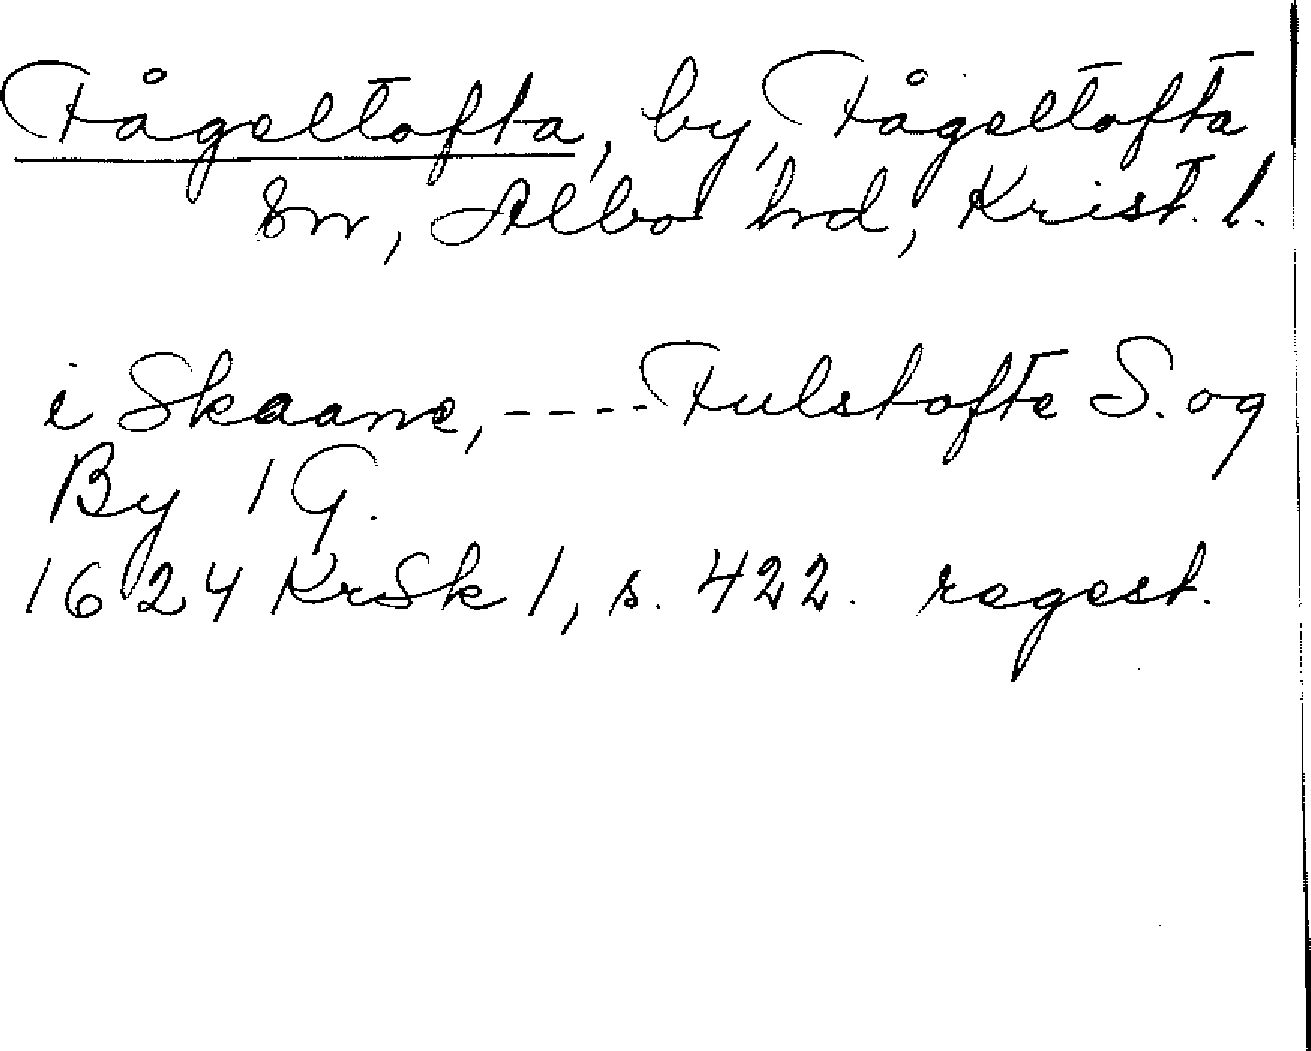 Fågeltofta, by, Fågeltofta
sn, Albo hd, Krist. l.
i Skaane, ---- Fulstofte S. og
By 1 G.
1624 KrSk 1, s. 422. regest.